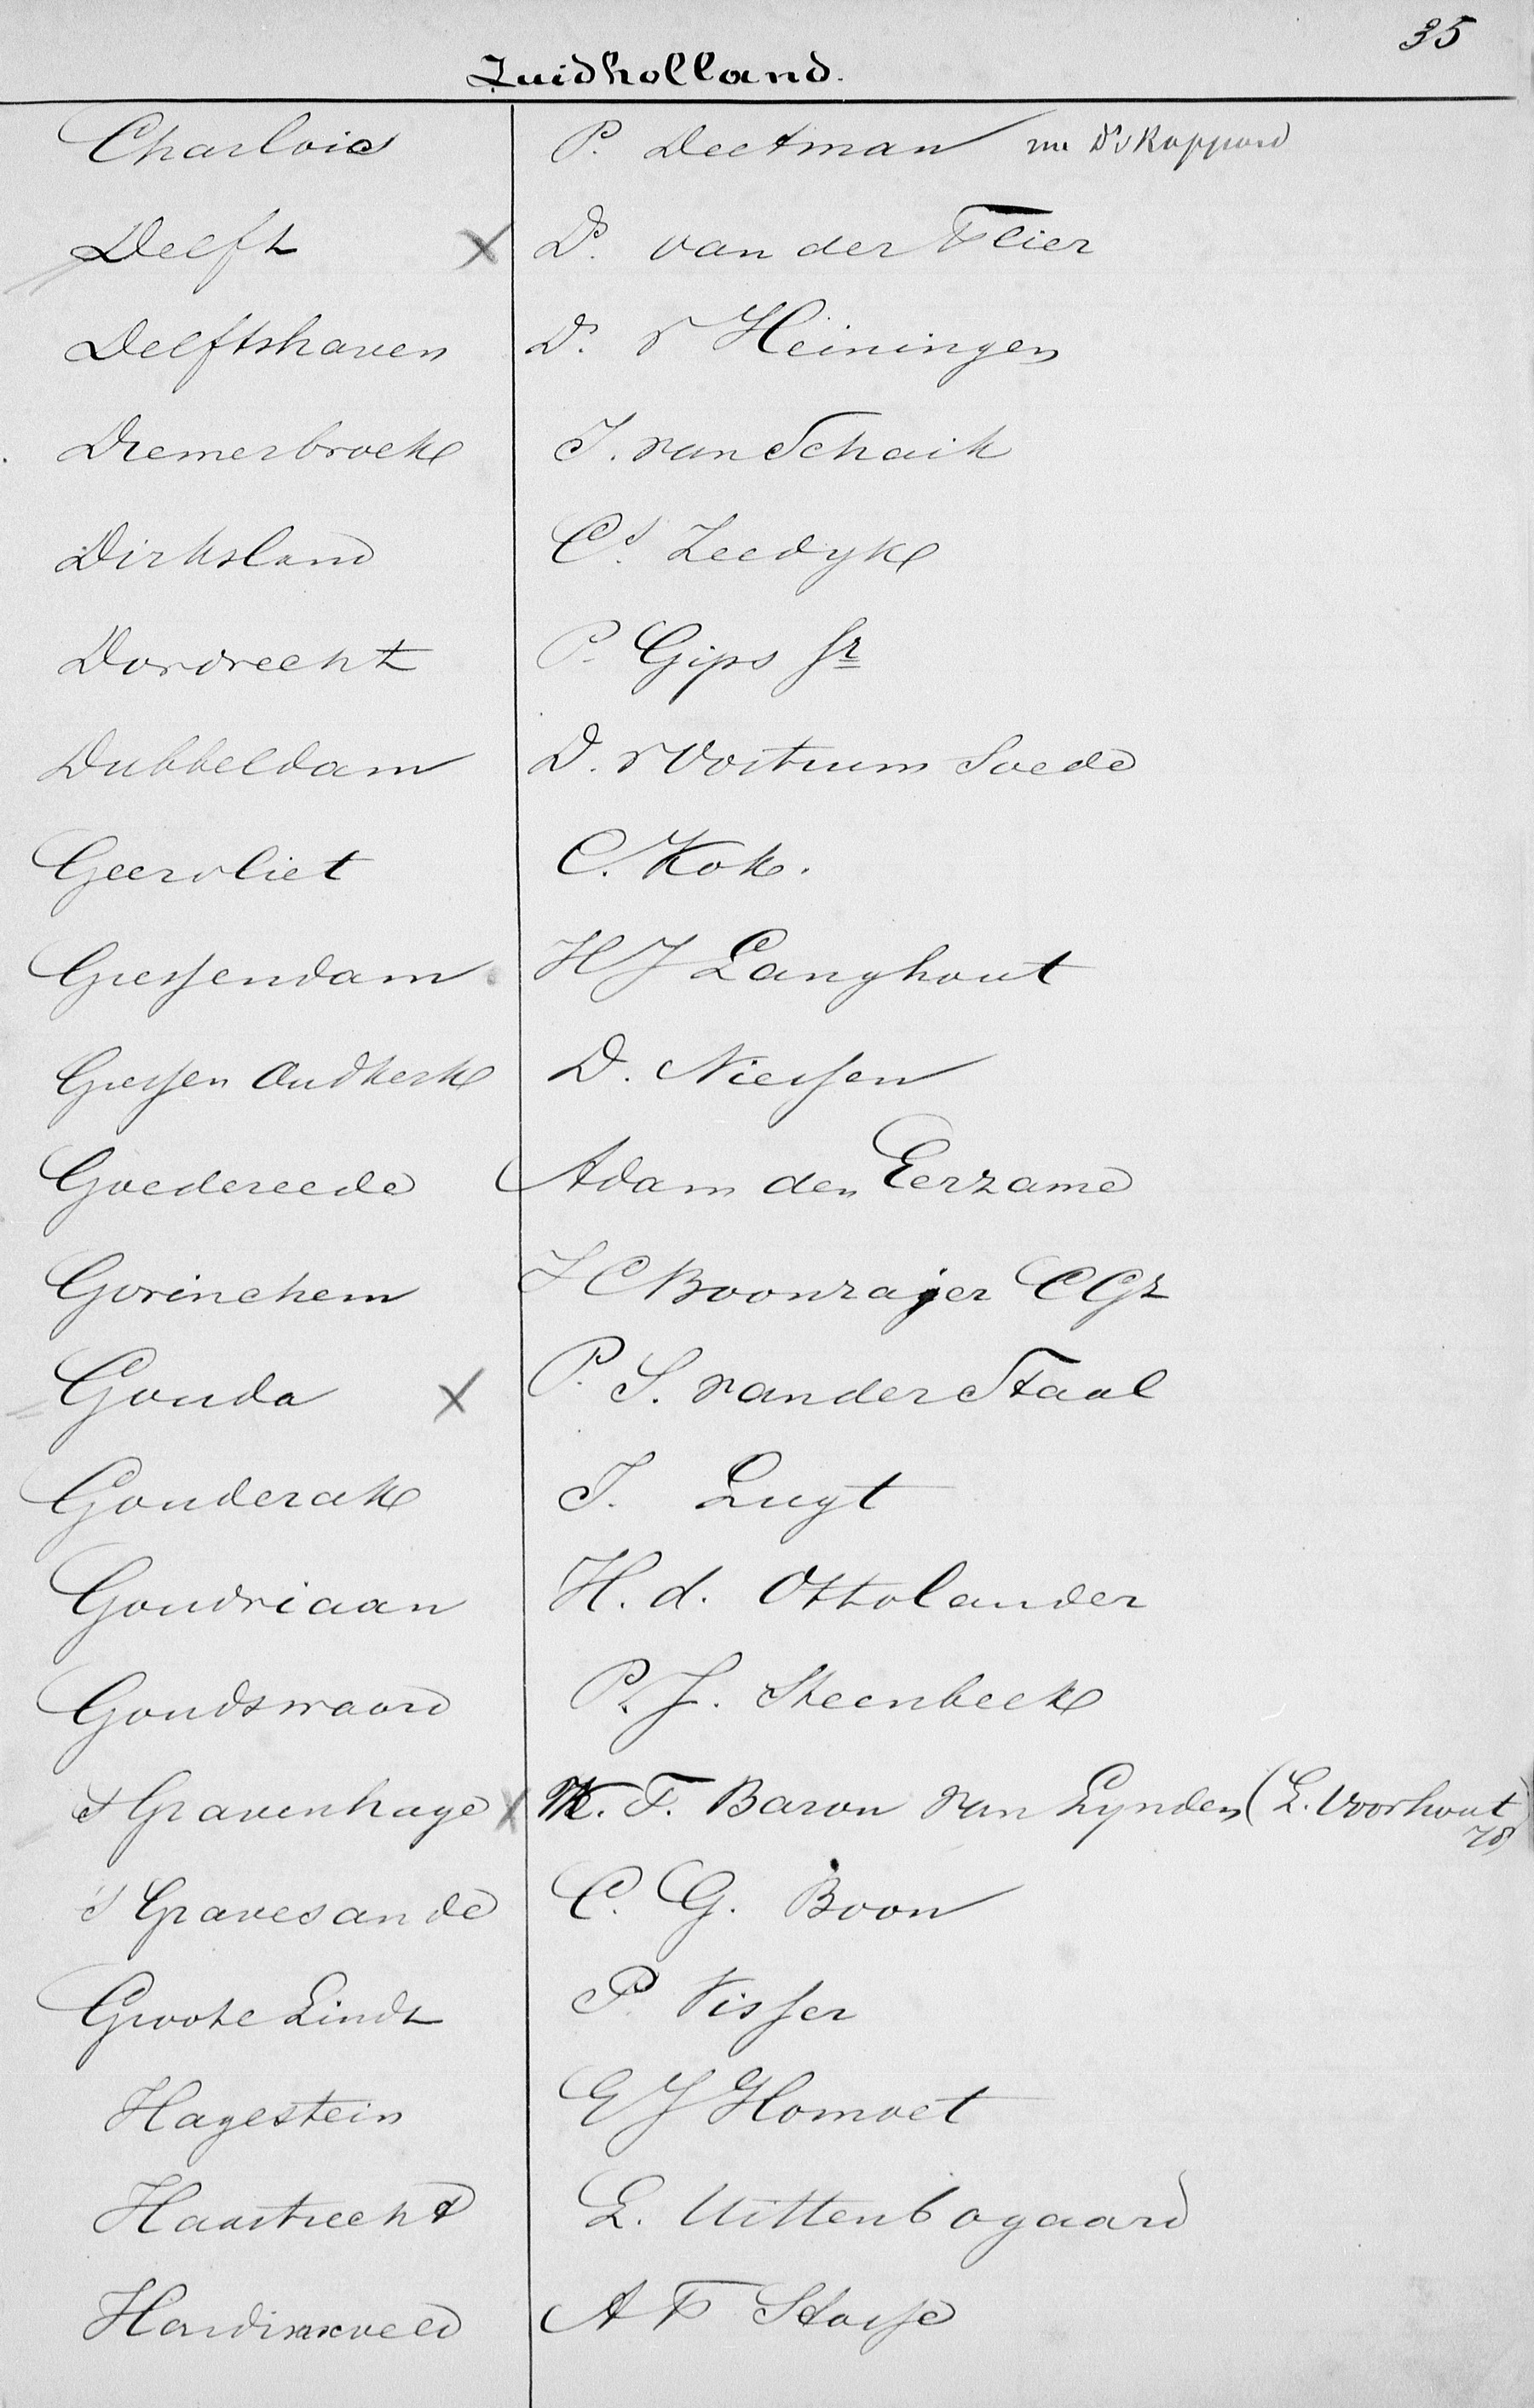 35
Zuidholland.
Charlois P. Deetman nu Ds v Rappard
Delft x Ds. van der Flier
Delftshaven Ds. v Heiningen
Diemerbroek J. van Schaik
Dirksland Cs. Zeedyk
Dordrecht P. Gips Sr
Dubbeldam D. v Vostrum Soede
Geervliet C. Kok.
Giessendam H J Langhout
Giessen Oudkerk D. Niessen
Goedereede Adam den Eerzame
Gorinchem J C Boonzajer C Gz
Gouda x P. S. van der Staal
Gouderak J. Luyt
Goudriaan H. d. Ottolander
Goudswaard P. J. Steenbeek
s Gravenhage x K. F. Baron van Lynden (L. Voorhout
78)
's Gravesande C. G. Boon
Groote Lindt P. Visser
Hagestein E J Homoet
Haastrecht L. Uittenbogaard
Hardinxveld A F Stasse